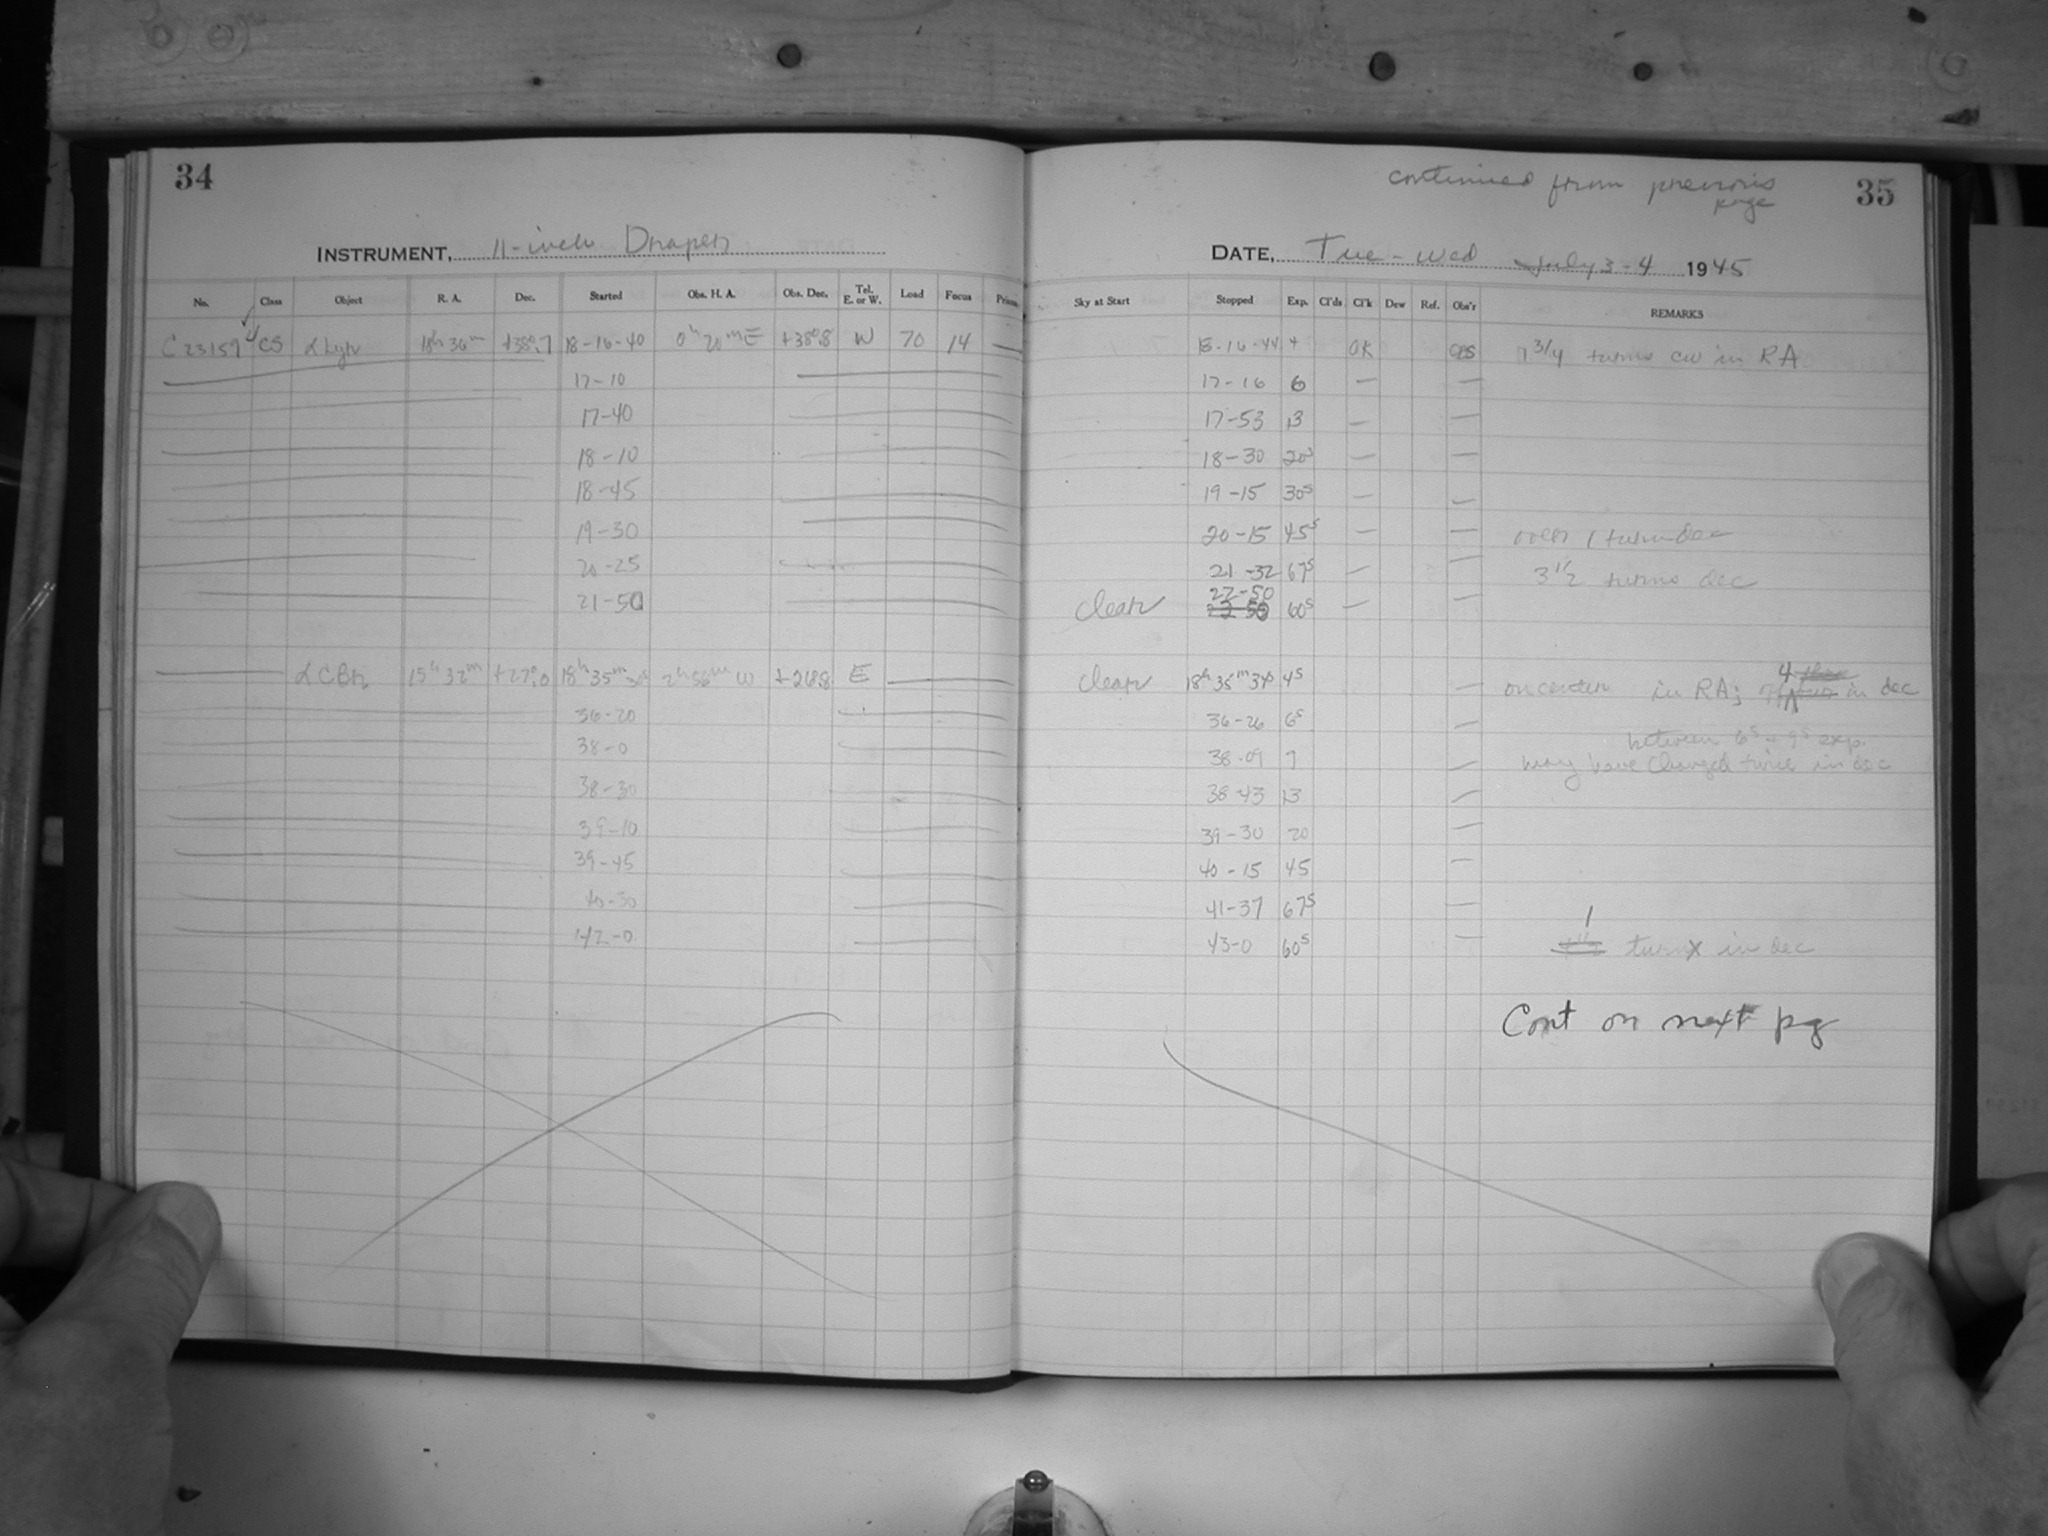 34
INSTRUMENT, 11-inch Draper
No. Class Object R. A. Dec. Started Obs. H. A. Obs. Dec. Tel. E. or W. Load Focus Prism
C 23159 CS α Lyr 18h 36m +38°.7 18-16-40 0h 20m E +38°.8 W 70 14
17-10
17-40
18-10
18-45
19-30
20-25
21-50
α CBr 15h 32m +27°.0 18h 35m 30s 2h 56m W +26.8 E
36-20
38-0
38-30
39-10
39-45
40-30
42-0
continued from previous page 35
DATE, Tue - Wed July 3-4 1945
Sky at Start Stopped Exp. Cl'ds Cl'k Dew Ref. Obs'r REMARKS
18-16-44 4 OK 7 3/4 turns cw in RA
17-16 6
17-53 13
18-30 20s
19-15 30s
20-15 45s over 1 turn dec
21-32 67s 3 1/2 turns dec
clear 22-50 60s
clear 18h 35m 34s 4s on center in RA; 4 in dec
36-26 6s
between 6s + 9s exp.
38-09 9 may have changed twice in dec
38-43 13
39-30 20
40-15 45
41-37 67s
43-0 60s 1 turn in dec
Cont on next pg